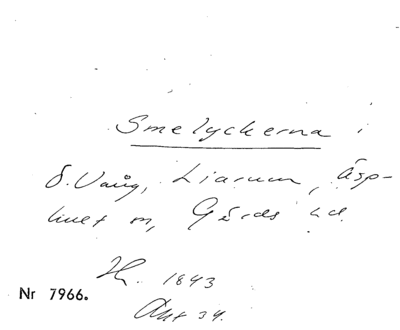 Smelyckerna i
Ö. Vång, Liarum, Äsp-
huet m, Gärds hd.
H. 1843
Akt 34.
Nr 7966.